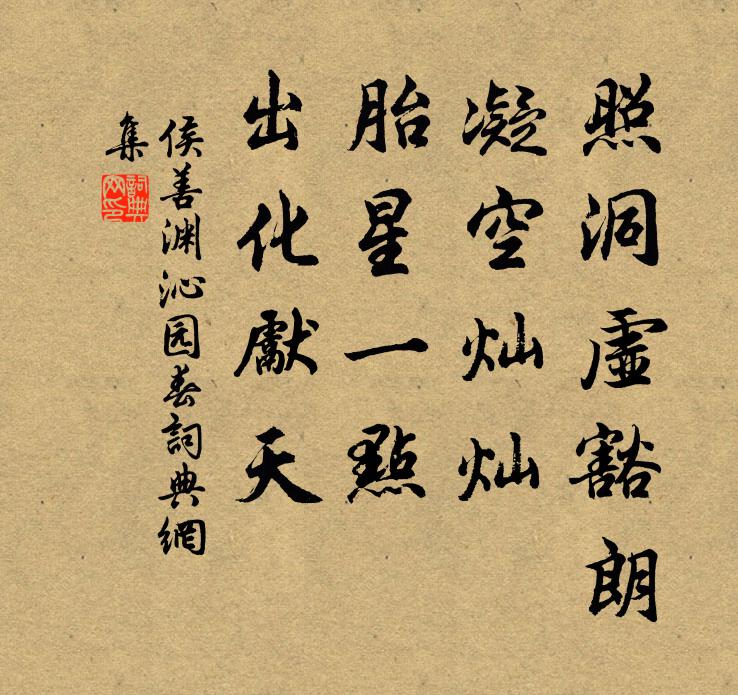 照洞虛豁朗
凝空灿灿
胎星一點
出化獻天
侯善渊沁园春詞典網
集
詞典網印